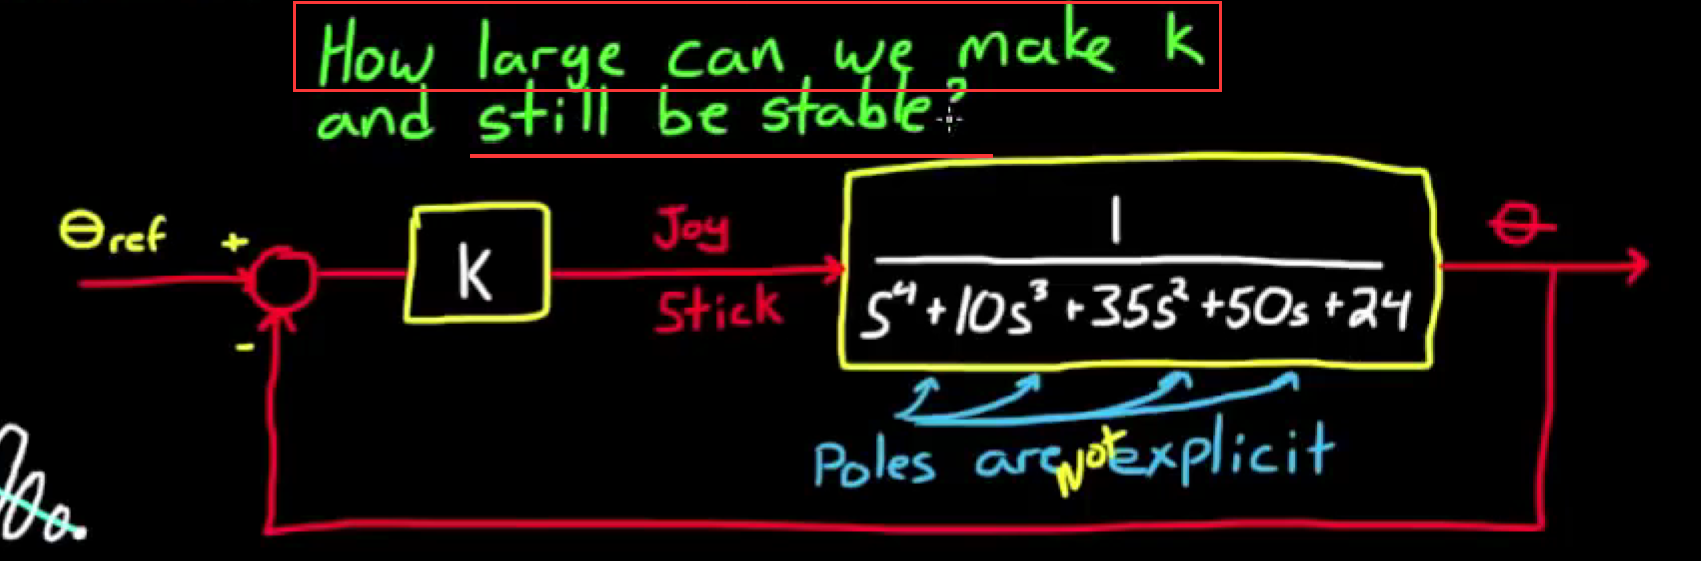 How large can we make K
and still be stable?
θref
+
K
Joy
Stick
1
s⁴+10s³+35s²+50s+24
θ
-
Poles are not explicit